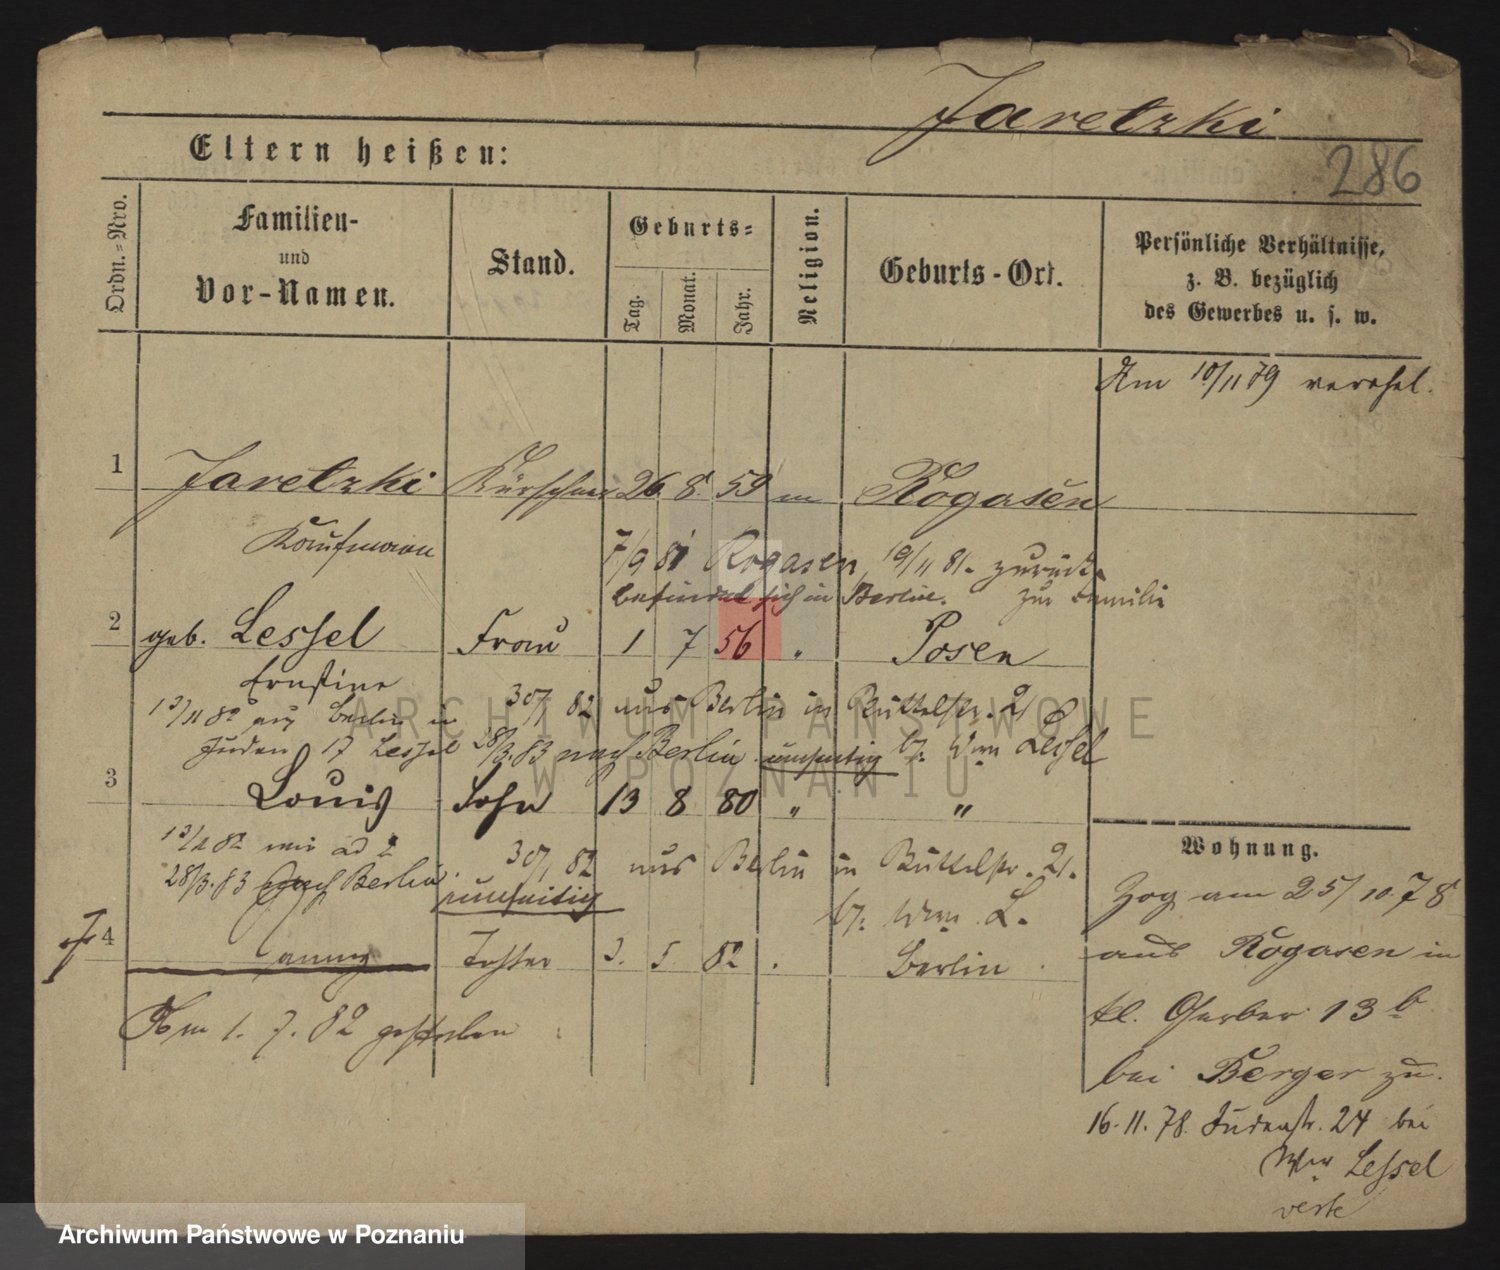 Jaretzki
286
Eltern heißen:
Ordn.=Nro.
Familien-
und
Vor-Namen.
Stand.
Geburts=
Tag.
Monat.
Jahr.
Religion.
Geburts-Ort.
Persönliche Verhältnisse,
z. B. bezüglich
des Gewerbes u. s. w.
Am 10/11 79 verehel.
1 Jaretzki Kürschner 26 8. 59 m Rogasen
Kaufmann
7/9 81 Rogasen, 19/11 81. zurück
befindet sich in Berlin. zur Familie
2 geb. Lessel Frau 1 7 56 " Posen
Ernstine
30/1 82 aus Berlin in Büttelstr. 21
13/11 82 aus Berlin in
Juden 17 Lessel 28/3.83 nach Berlin umseitig b. Wwe Lessel
3 Louis Sohn 13 8 80 " "
13/11 82 wie ad 2 30/1 82 aus Berlin in Büttelstr. 21.
28/3.83 nach Berlin.
umseitig b. Wwe. L.
4 Tochter 3. 5. 82 . Berlin
Am 1. 7. 82 gestorben
Wohnung.
Zog am 25/10.78
aus Rogasen in
kl. Gerber 13 b
bei Berger zu.
16.11.78. Judenstr. 24 bei
Wwe Lessel
verte
ARCHIWUM PAŃSTWOWE
W POZNANIU
Archiwum Państwowe w Poznaniu